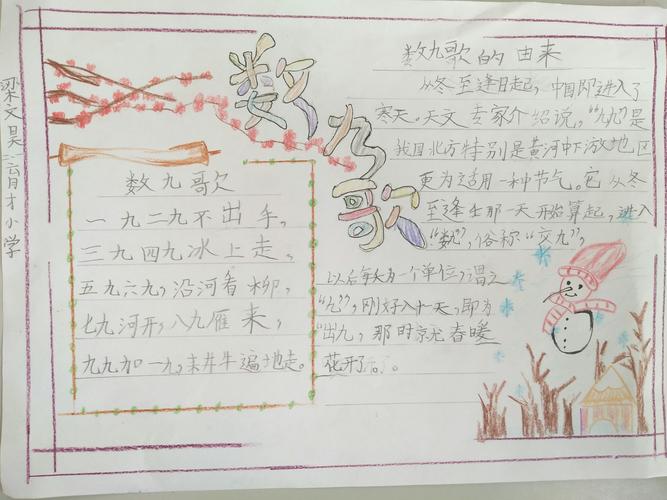 梁文昊 三六 育才小学
数九歌
数九歌
一九二九不出手,
三九四九冰上走,
五九六九,沿河看柳,
七九河开,八九雁来,
九九加一九,耒井牛遍地走。
数九歌的由来
从冬至逢日起,中国即进入了
寒天。天文专家介绍说,“九九”是
我国北方特别是黄河中下游地区
更为适用一种节气。它从冬
至逢壬那一天开始算起,进入
“数九”,俗称“交九”,
以后每九为一个单位,谓之
“九”,刚好八十一天,即为
“出九”,那时就春暖
花开了。